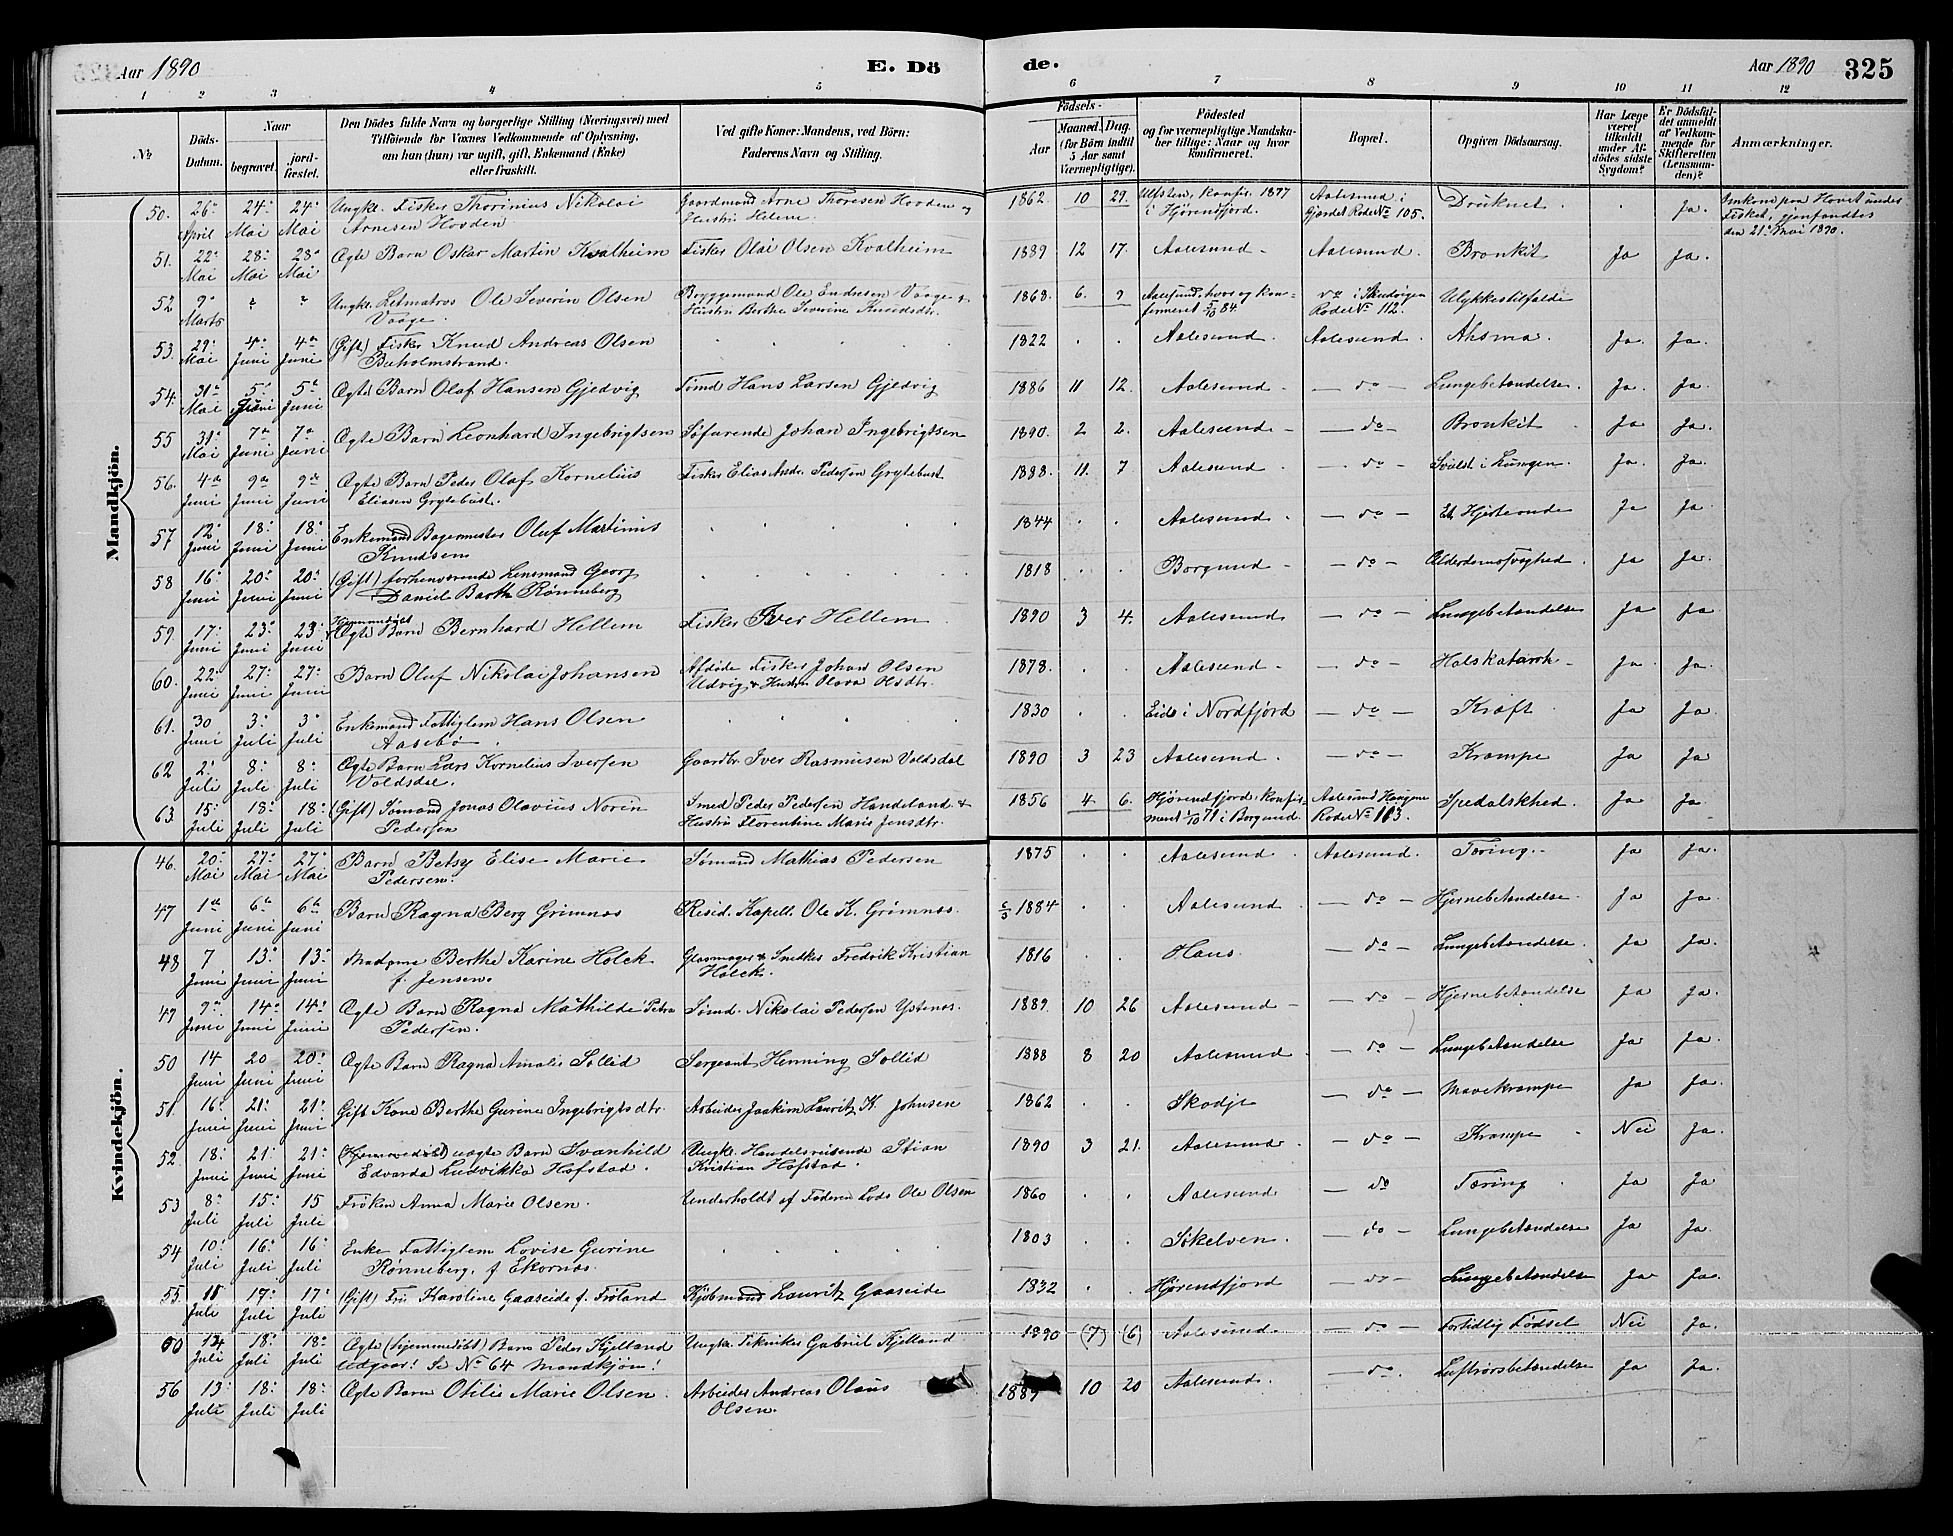 Aar 1890 E. Döde. Aar 1890 325
1 2 3 4 5 6 7 8 9 10 11 12
№ Döds-Datum. Naar begravet. jordfæstet. Den Dödes fulde Navn og borgerlige Stilling (Næringsvei) med Tilføiende for Voxnes Vedkommende af Oplysning, om han (hun) var ugift, gift, Enkemand (Enke) eller fraskilt. Ved gifte Koner: Mandens, ved Börn: Faderens Navn og Stilling. Födsels- Aar Maaned. Dag. (for Børn indtil 5 Aar samt Værnepligtige). Födested og for værnepligtige Mandskaber tillige: Naar og hvor konfirmeret. Bopæl. Opgiven Dödsaarsag. Har Læge været tilkaldt under Afdødes sidste Sygdom? Er Dödsfaldet anmeldt af Vedkommende for Skifteretten (Lensmanden)? Anmærkninger.
Mandkjön.
50. 26. April 24. Mai 24. Mai Ungk. Fisker Thorinius Nikolai Arnesen Hovden Gaardmand Arne Thoresen Hovden og Hustru Helene. 1862 10 29. Ulfsten, konfir. 1877 i Hjörendfjord. Aalesund i Gjordet Rode No 105. Druknet. Ja. Omkom paa Havet under Fisket, gjenfandtes den 21. Mai 1890.
51. 22. Mai 28. Mai 28. Mai Ægte Barn Oskar Martin Kvalheim Fisker Olai Olsen Kvalheim 1889 12 17. Aalesund Aalesund. Bronkit Ja Ja.
52 9. Marts Ungk. Letmatros Ole Severin Olsen Vaage. Bryggemand Ole Endresen Vaage & Hustru Berthe Severine Knudsdtr. 1868. 6. 9 Aalesund, hvor og konfirmeret 5/10 84. do i Skudvigen Rode No 112. Ulykkestilfælde
53. 29. Mai 4de Juni 4de Juni (Gift) Fisker Knud Andreas Olsen Buholmstrand. 1822 Aalesund Aalesund. Ahsma Ja. Ja.
54. 31. Mai 5. Juni 5. Juni Ægte Barn Olaf Hansen Gjedvig Sømd Hans Larsen Gjedvig 1886 11 12. Aalesund do Lungebetændelse. Ja. Ja.
55 31. Mai 7de Juni 7de Juni Ægte Barn Leonhard Ingebrigtsen Søfarende Johan Ingebrigtsen 1890. 2 2. Aalesund do Bronkit Ja Ja.
56. 4de Juni 9de Juni 9de Juni Ægte Barn Peder Olaf Kornelius Eliasen Grytebust. Fisker Elias Andr. Pedersen Grytebust 1888. 11. 7 Aalesund do Svulst i Lungen. Ja. Ja.
57 12 Juni 18. Juni 18. Juni Enkemand Bagermester Oluf Martinus Knudsen 1844 Aalesund do Et Hjerteonde Ja Ja.
58 16. Juni 20. Juni 20. Juni (Gift) forhenværende Lensmand Georg Daniel Barth Rønneberg 1818 Borgund do Alderdomssvaghed. Ja Ja.
59. 17. Juni 23. Juni 23. Juni Hjemmedöbt Ægte Barn Bernhard Hellem Fisker Iver Hellem 1890 3 4. Aalesund do Lungebetændelse Ja Ja.
60. 22. Juni 27. Juni 27. Juni Barn Oluf Nikolai Johansen Afdøde Fisker Johan Olsen Udvig & Hustru Olava Olsdtr. 1878. Aalesund do Halskatarrh Ja Ja.
61. 30 Juni 3. Juli 3. Juli Enkemand Fattiglem Hans Olsen Aasebø. 1830 Eid i Nordfjord do Kræft Ja Ja.
62 2. Juli 8. Juli 8. Juli Ægte Barn Lars Kornelius Iversen Voldsdal. Gaardbr. Iver Rasmusen Voldsdal 1890 3 23 Aalesund. do Krampe Ja Ja
63. 15. Juli 18. Juli 18. Juli (Gift) Sømand Jonas Olavius Norin Pedersen Smed Peder Pedersen Handeland & Hustru Florentine Marie Jensdtr. 1856 4 6. Hjørendfjord, konfirmeret 1/10 71 i Borgund. Aalesund Haugene Rode No 113. Spedalskhed. Ja Ja.
Kvindekjön.
46. 20. Mai 27. Mai 27. Mai Barn Betsy Elise Marie Pedersen. Sømand Mathias Pedersen 1875 Aalesund Aalesund. Tæring. Ja Ja.
47 1de Juni 6de Juni 6de Juni Barn Ragna Berg Grimnæs Resid. Kapell. Ole K. Grimnæs. 1884 Aalesund. do Hjernebetændelse. Ja Ja
48 7 Juni 13. Juni 13. Juni Madame Berthe Karine Holck f. Jensen. Glasmager & Snedker Fredrik Kristian Holck. 1816 Haus. do Lungebetændelse. Ja Ja
49 9de Juni 14. Juni 14. Juni Ægte Barn Ragna Mathilde Petra Pedersen. Sømd. Nikolai Pedersen Ystenæs. 1889. 10 26 Aalesund do Hjernebetændelse Ja Ja.
50 14 Juni 20 Juni 20. Juni Ægte Barn Ragna Amalie Sollid Sergeant Henning Sollid 1888 8 20 Aalesund do Lungebetændelse Ja Ja.
51. 16. Juni 21. Juni 21. Juni Gift Kone Berthe Gurine Ingebrigtsdtr. Arbeider Joakim Lauritz K. Johnsen 1862 Skodje do Mavekrampe Ja Ja.
52. 18. Juni 21. Juni 21. Juni (Hjemmedöbt) uægte Barn Svanhild Edvarda Ludvikka Hofstad. Ungk. Handelsreisende Stian Kristian Hofstad. 1890 3 21. Aalesund. do Krampe Nei Ja.
53 8. Juli 15. Juli 15 Juli Frøken Anna Marie Olsen. Underholdt af Faderen Lods Ole Olsen 1860 Aalesund do Tæring Ja Ja.
54 10. Juli 16. Juli 16. Juli Enke Fattiglem Lovise Gurine Rønneberg, f. Ekornæs. 1803 Søkelven. do Lungebetændelse Ja Ja.
55. 11 Juli 17. Juli 17. Juli (Gift) Fru Karoline Gaaseide f. Frøland Kjøbmand Lauritz Gaaseide 1832 Hjørendfjord do Lungebetændelse Ja Ja.
14 Juli 18. Juli 18. Juli Ægte (hjemmedöbt) Barn Peder Kjelland Udgaar! Se No 64 Mandkjøn! Ungk. Tekniker Gabriel Kjelland 1890 (7) (6) Aalesund. do Fortidlig Födsel Nei Ja.
56 13. Juli 18. Juli 18. Juli Ægte Barn Otilie Marie Olsen. Arbeider Andreas Olaus Olsen. 1889 10 20 Aalesund. do. Luftrørsbetændelse Ja Ja.